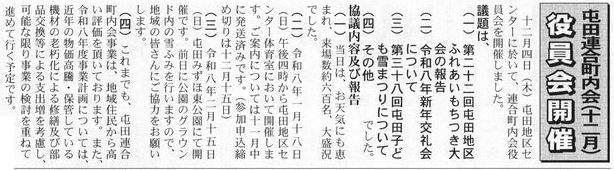 屯田連合町内会(十二月)
役員会開催
十二月四日(木)屯田地区セ
ンターに於いて、連合町内会役
員会を開催しました。
議題は、
(一) 第二十二回屯田地区
ふれあいもちつき大
会の報告
(二) 令和八年新年交礼会
について
(三) 第三十八回屯田子ど
も雪まつりについて
(四) その他 でした。
協議内容及び報告
(一) 当日は、お天気にも恵
まれ、来場数約六百名、大盛況
でした。
(二) 令和八年一月十八日
(日)午後四時から屯田地区セ
ンター体育室において開催しま
す。ご案内については十一月中
に発送済みです。(参加申込締
め切りは十二月十五日)
(三) 令和八年二月十五日
(日)屯田みずほ東公園にて開
催です。前日に公園のグラウン
ド内の雪ふみを行いますので、
地域の皆さんにご協力をお願い
します。
(四) これまでも、屯田連合
町内会事業は、地域住民から高
い評価を頂いております。また、
令和八年度事業計画については、
近年の物価高騰・保管している
機材の老朽化による修繕及び部
品交換等による支出増を考慮し、
可能な限り事業の検討を重ねて
進めて行く予定です。